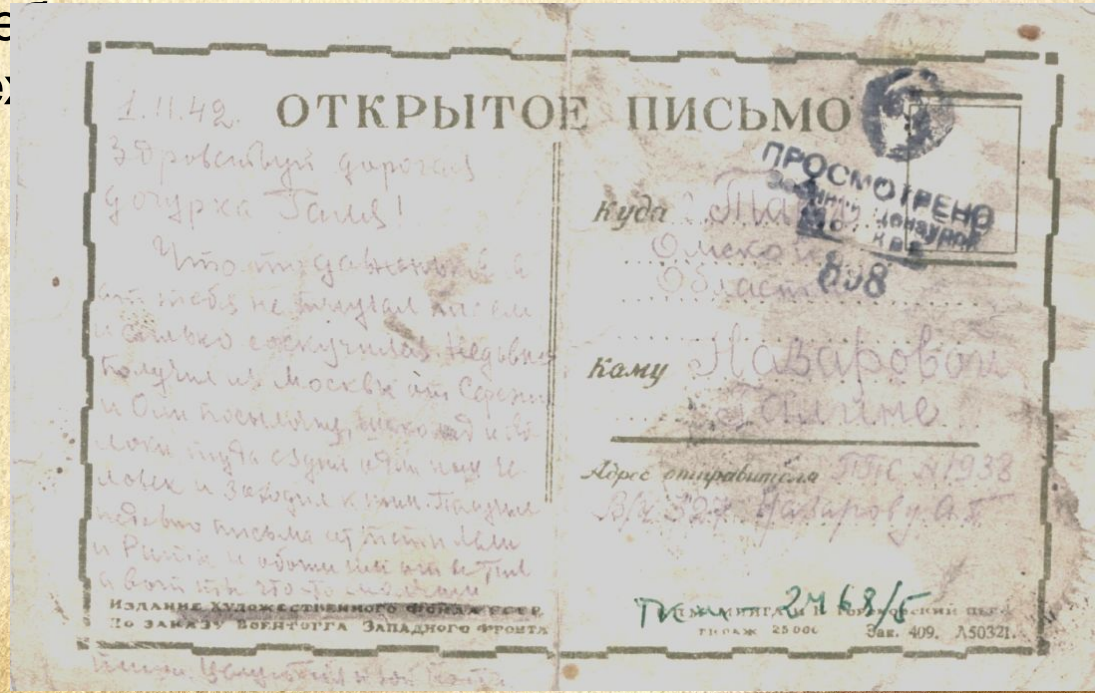 ОТКРЫТОЕ ПИСЬМО
1.11.42.
Здравствуй дорогая
дочурка Галя!
Что то давненько я
от тебя не получал писем
и сильно соскучился. Недавно
Получил из Москвы от Сережи
и Оли посылочку, шоколад и
туда ездил один наш че
ловек и Заходил к ним. Получил
недавно письма от тети Лели
и и обоим им ответил
а вот ты что-то
Издание Художественного Фонда СССР
По заказу Воентогга Западного Фронта
Целую твой
ПРОСМОТРЕНО
Военной Цензурой
898
Куда
Омской
Области
Кому Назаровой
Галине
Адрес отправителя ППС №1938
В/Ч 327 Назарову А.Г.
2768/5
тираж 25000 Зак. 409. Л50321.